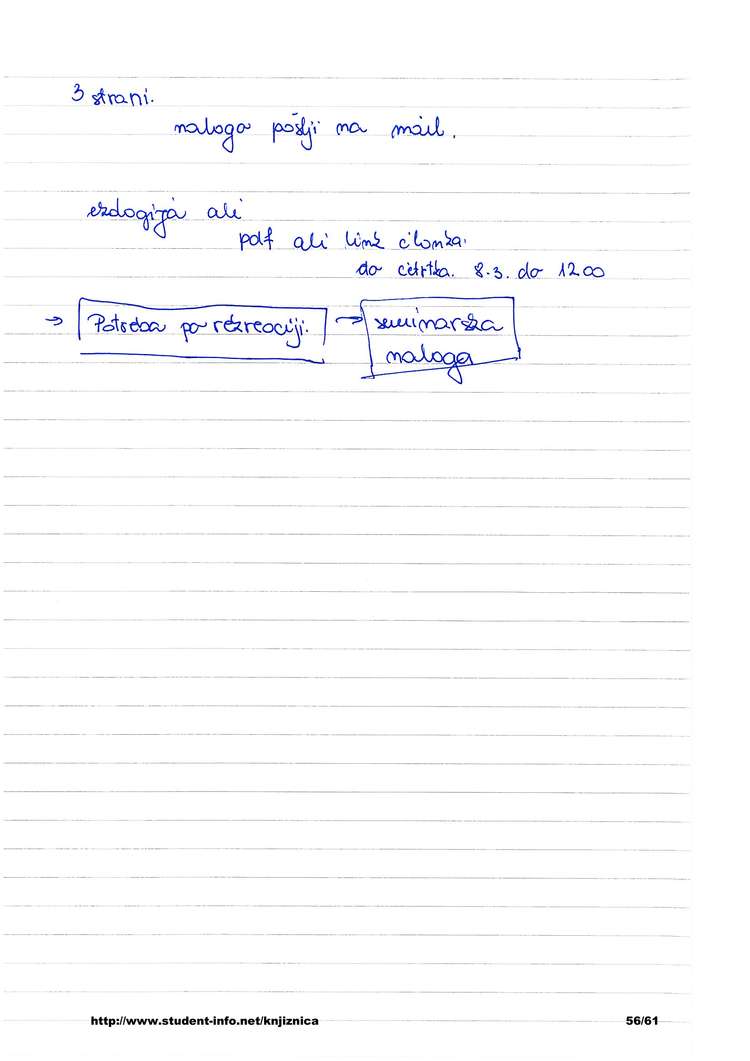 3 strani.
naloga pošlji na mail.
ekologija ali
pdf ali link članka.
do četrtka. 8.3. do 1200
→ Potreba po rekreaciji. → seminarska
naloga
http://www.student-info.net/knjiznica 56/61